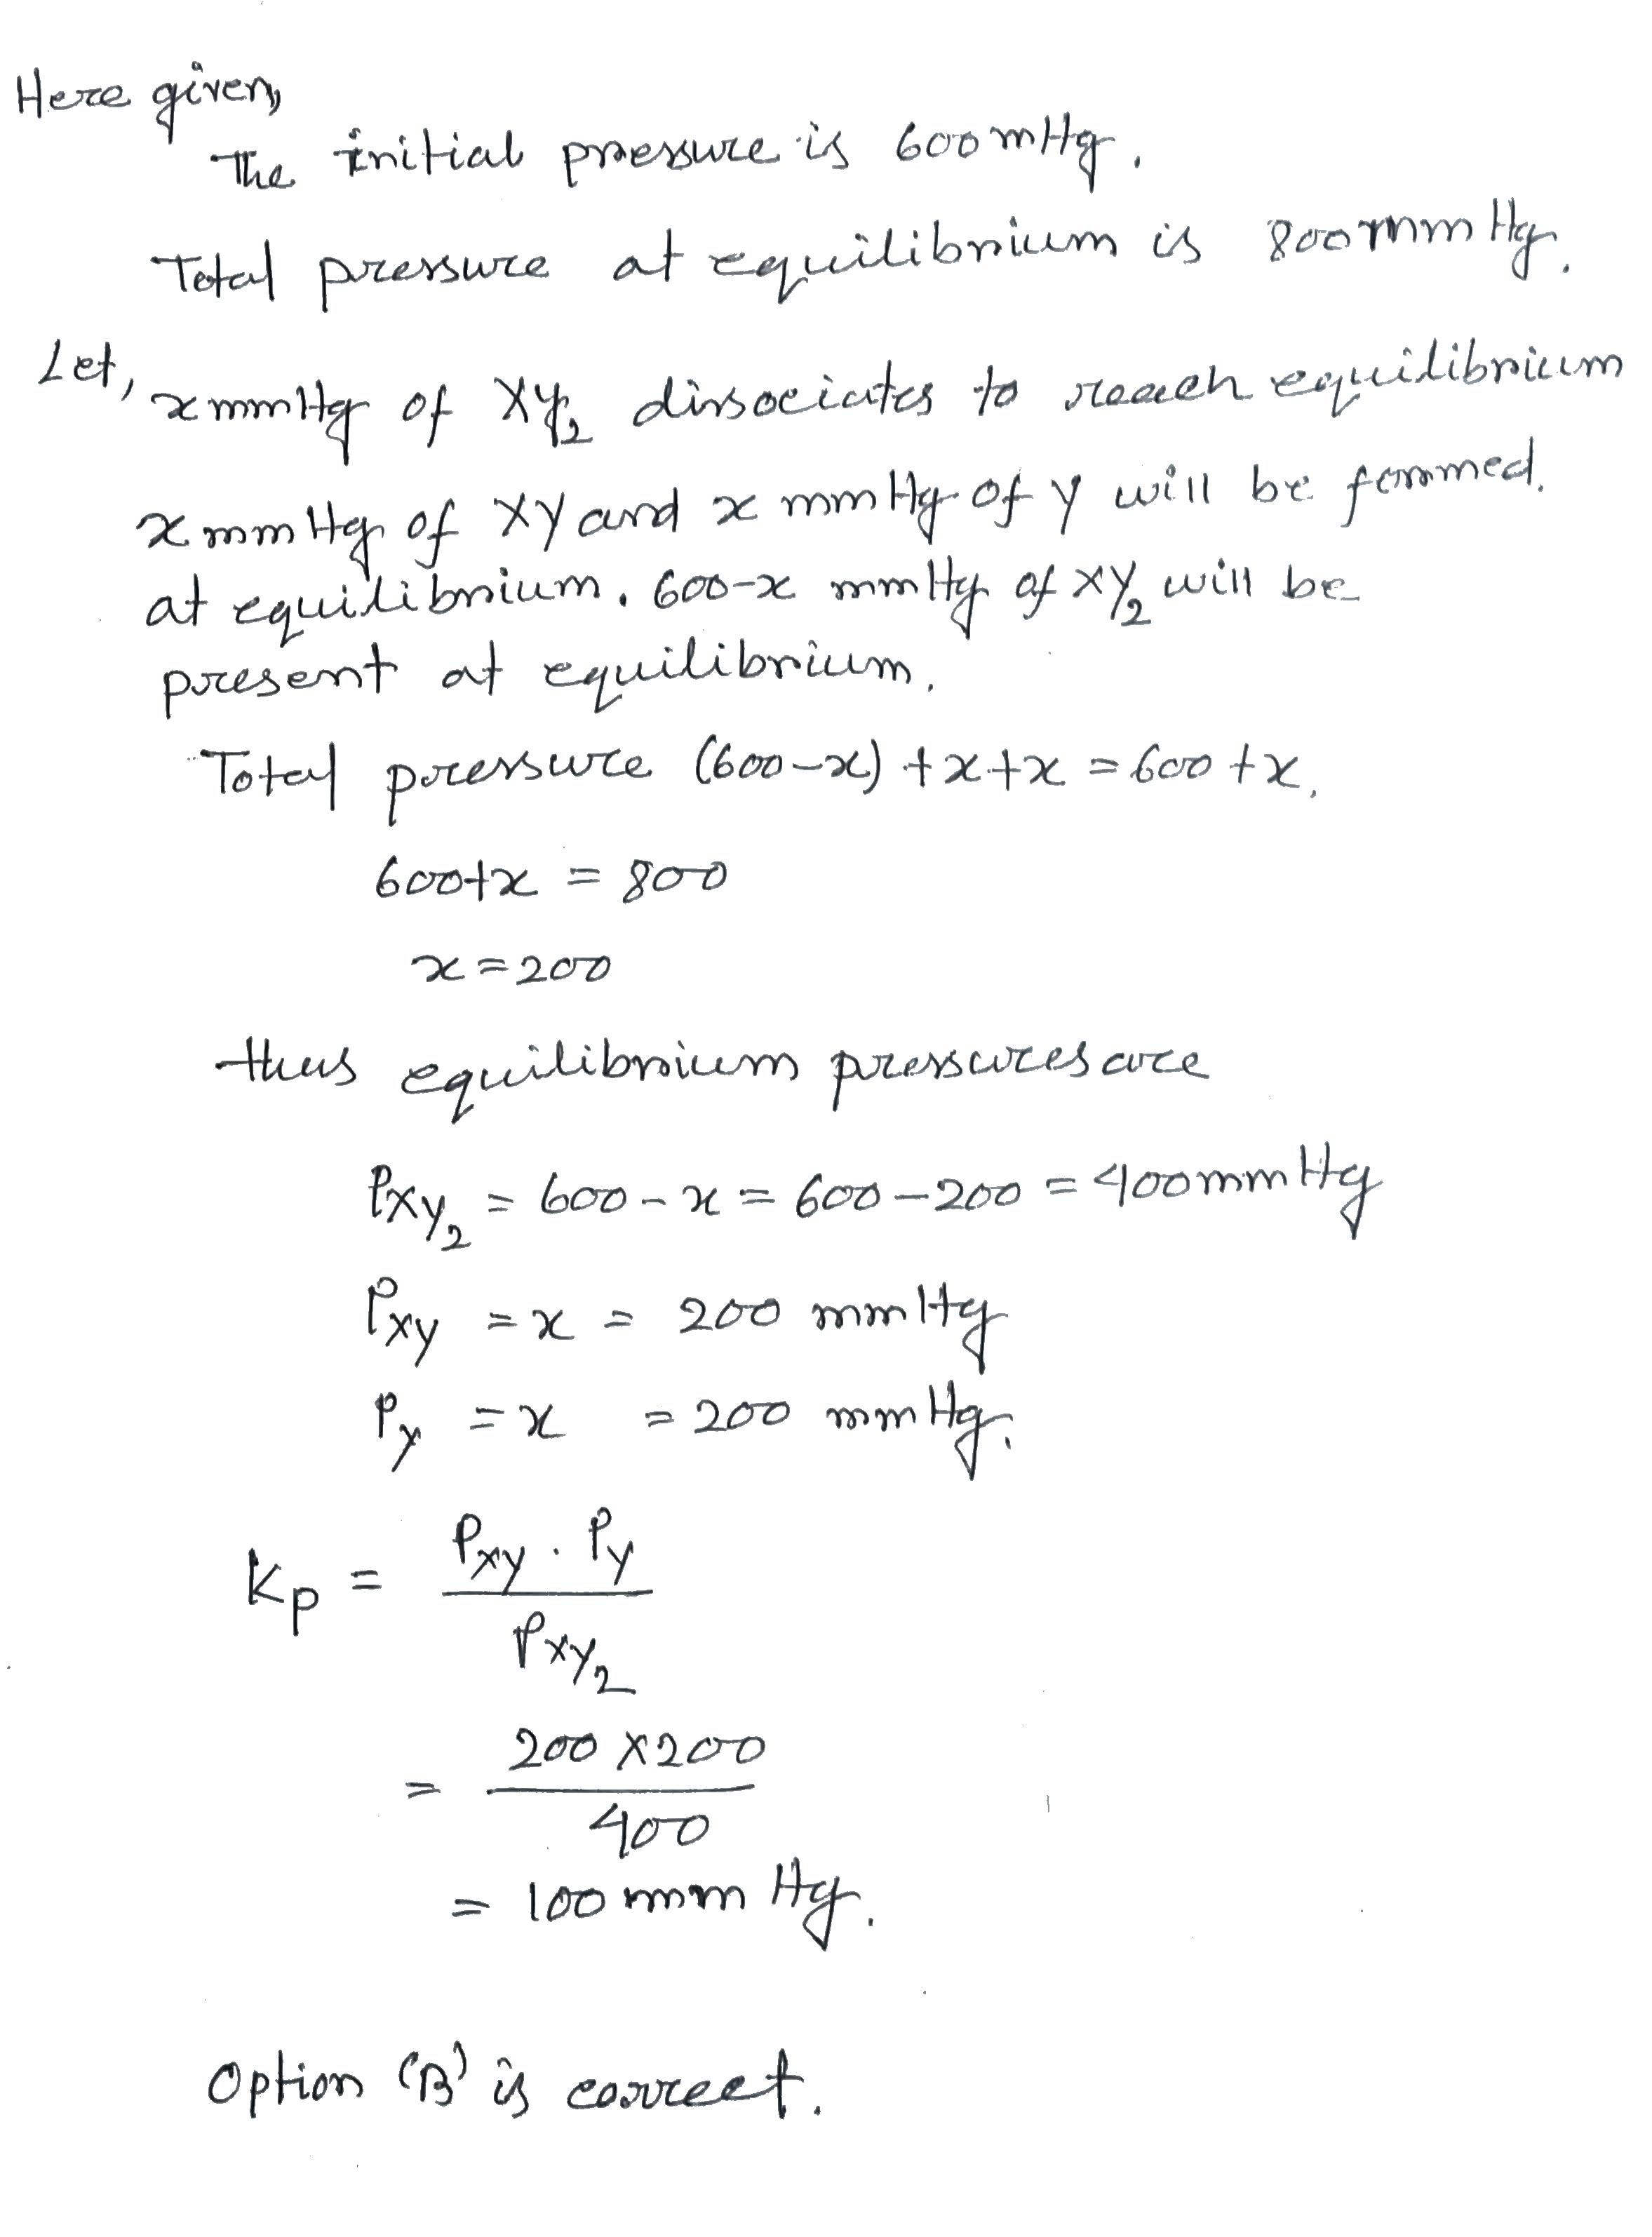 Here given,
The initial pressure is 600 mHg.
Total pressure at equilibrium is 800 mm Hg.
Let,
x mmHg of XY₂ dissociates to reach equilibrium
x mm Hg of XY and x mm Hg of Y will be formmed.
at equilibrium. 600-x mmHg of XY₂ will be
present at equilibrium.
Total pressure (600-x) + x + x = 600 + x.
600+x = 800
x = 200
thus equilibrium pressures are
Pxy₂ = 600 - x = 600 - 200 = 400 mm Hg
Pxy = x = 200 mm Hg
Py = x = 200 mm Hg.
Kp = Pxy . Py
Pxy₂
= 200 X 200
400
= 100 mm Hg.
Option (B) is correct.